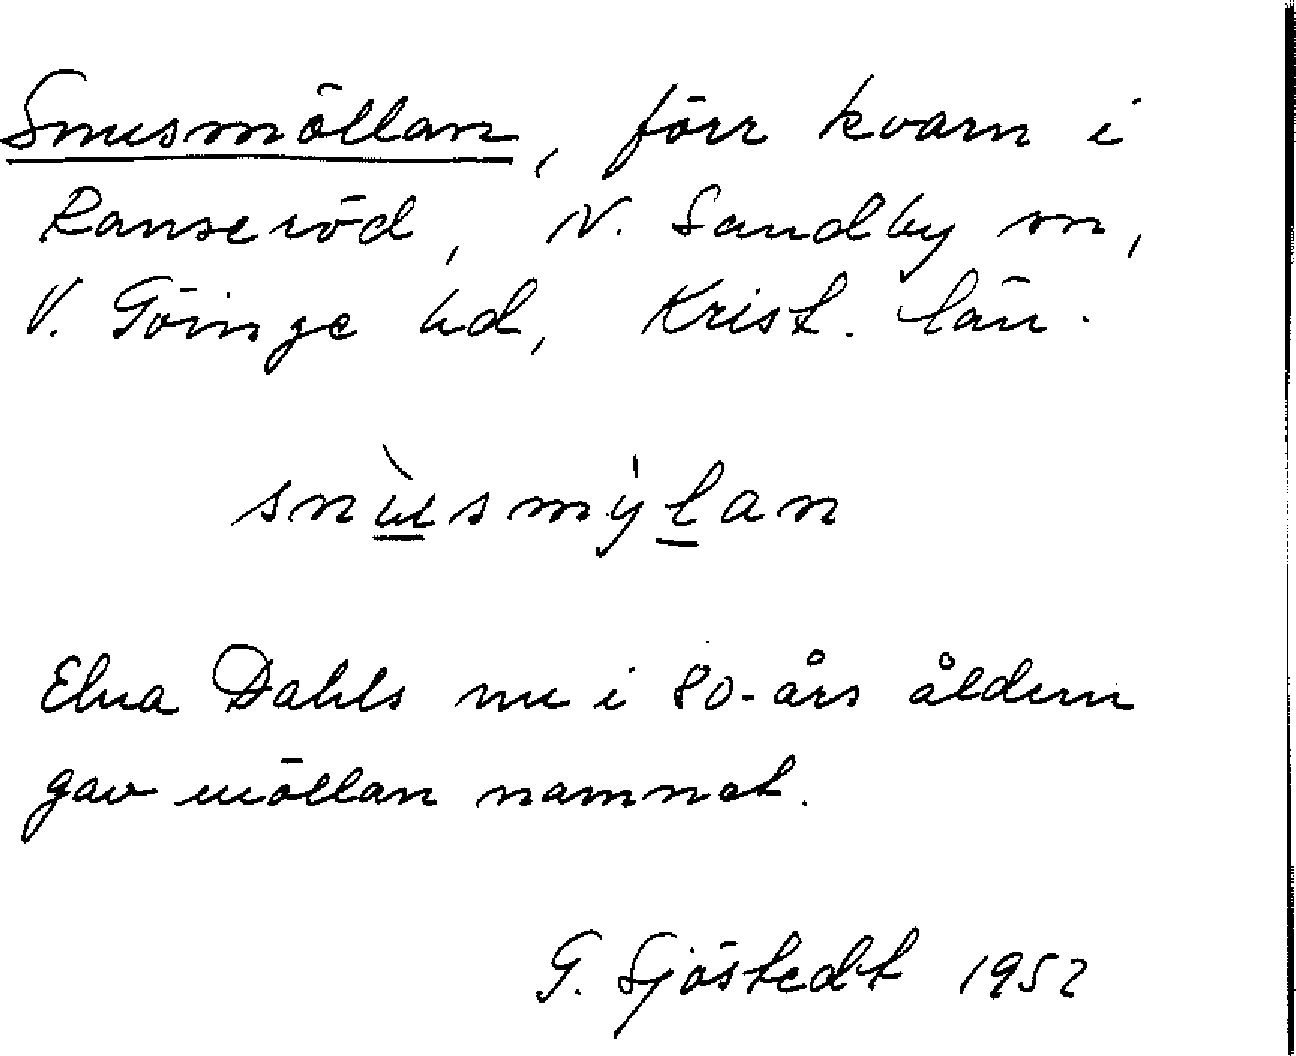 Snusmöllan, förr kvarn i
Ranseröd, N. Sandby sn,
V. Göinge hd, Krist. län.
snùsmýlan
Elna Dahls nu i 80-års åldern
gav möllan namnet.
G. Sjöstedt 1952